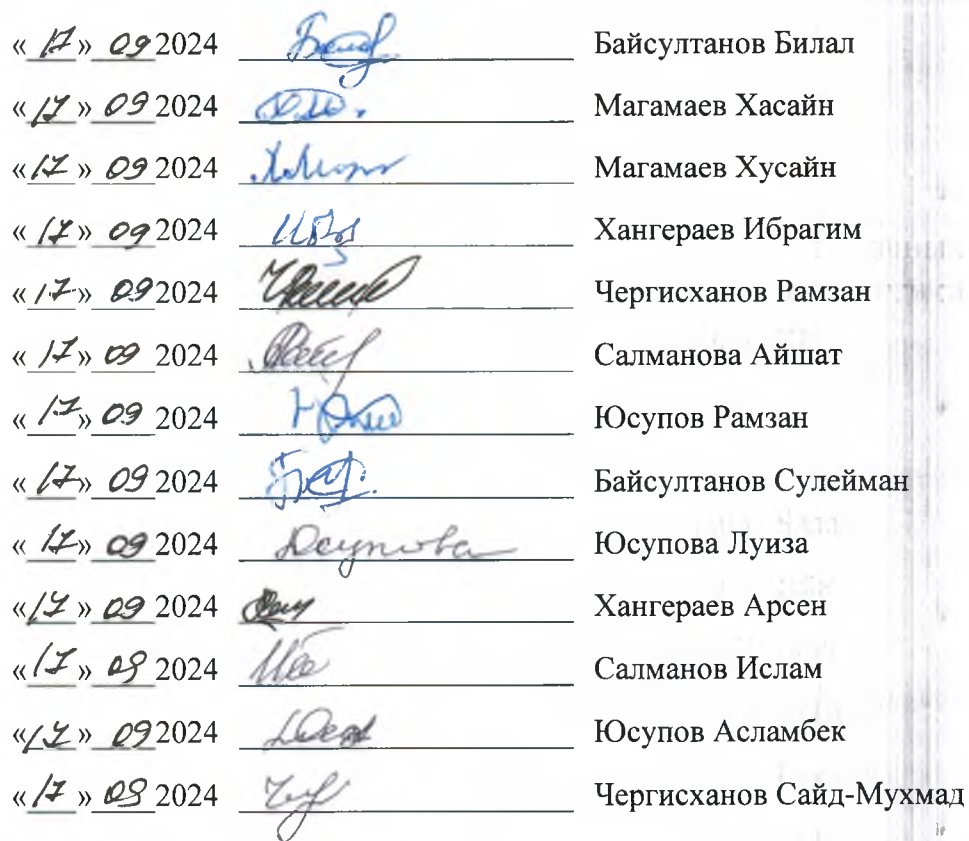 «17» 09 2024 Байсултанов Билал
«17» 09 2024 Магамаев Хасайн
«17» 09 2024 Магамаев Хусайн
«17» 09 2024 Хангераев Ибрагим
«17» 09 2024 Чергисханов Рамзан
«17» 09 2024 Салманова Айшат
«17» 09 2024 Юсупов Рамзан
«17» 09 2024 Байсултанов Сулейман
«17» 09 2024 Юсупова Юсупова Луиза
«17» 09 2024 Хангераев Арсен
«17» 09 2024 Салманов Ислам
«17» 09 2024 Юсупов Асламбек
«17» 09 2024 Чергисханов Сайд-Мухмад